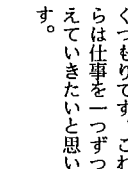 くつもりです。これ
らは仕事を一つずつ
えていきたいと思い
す。